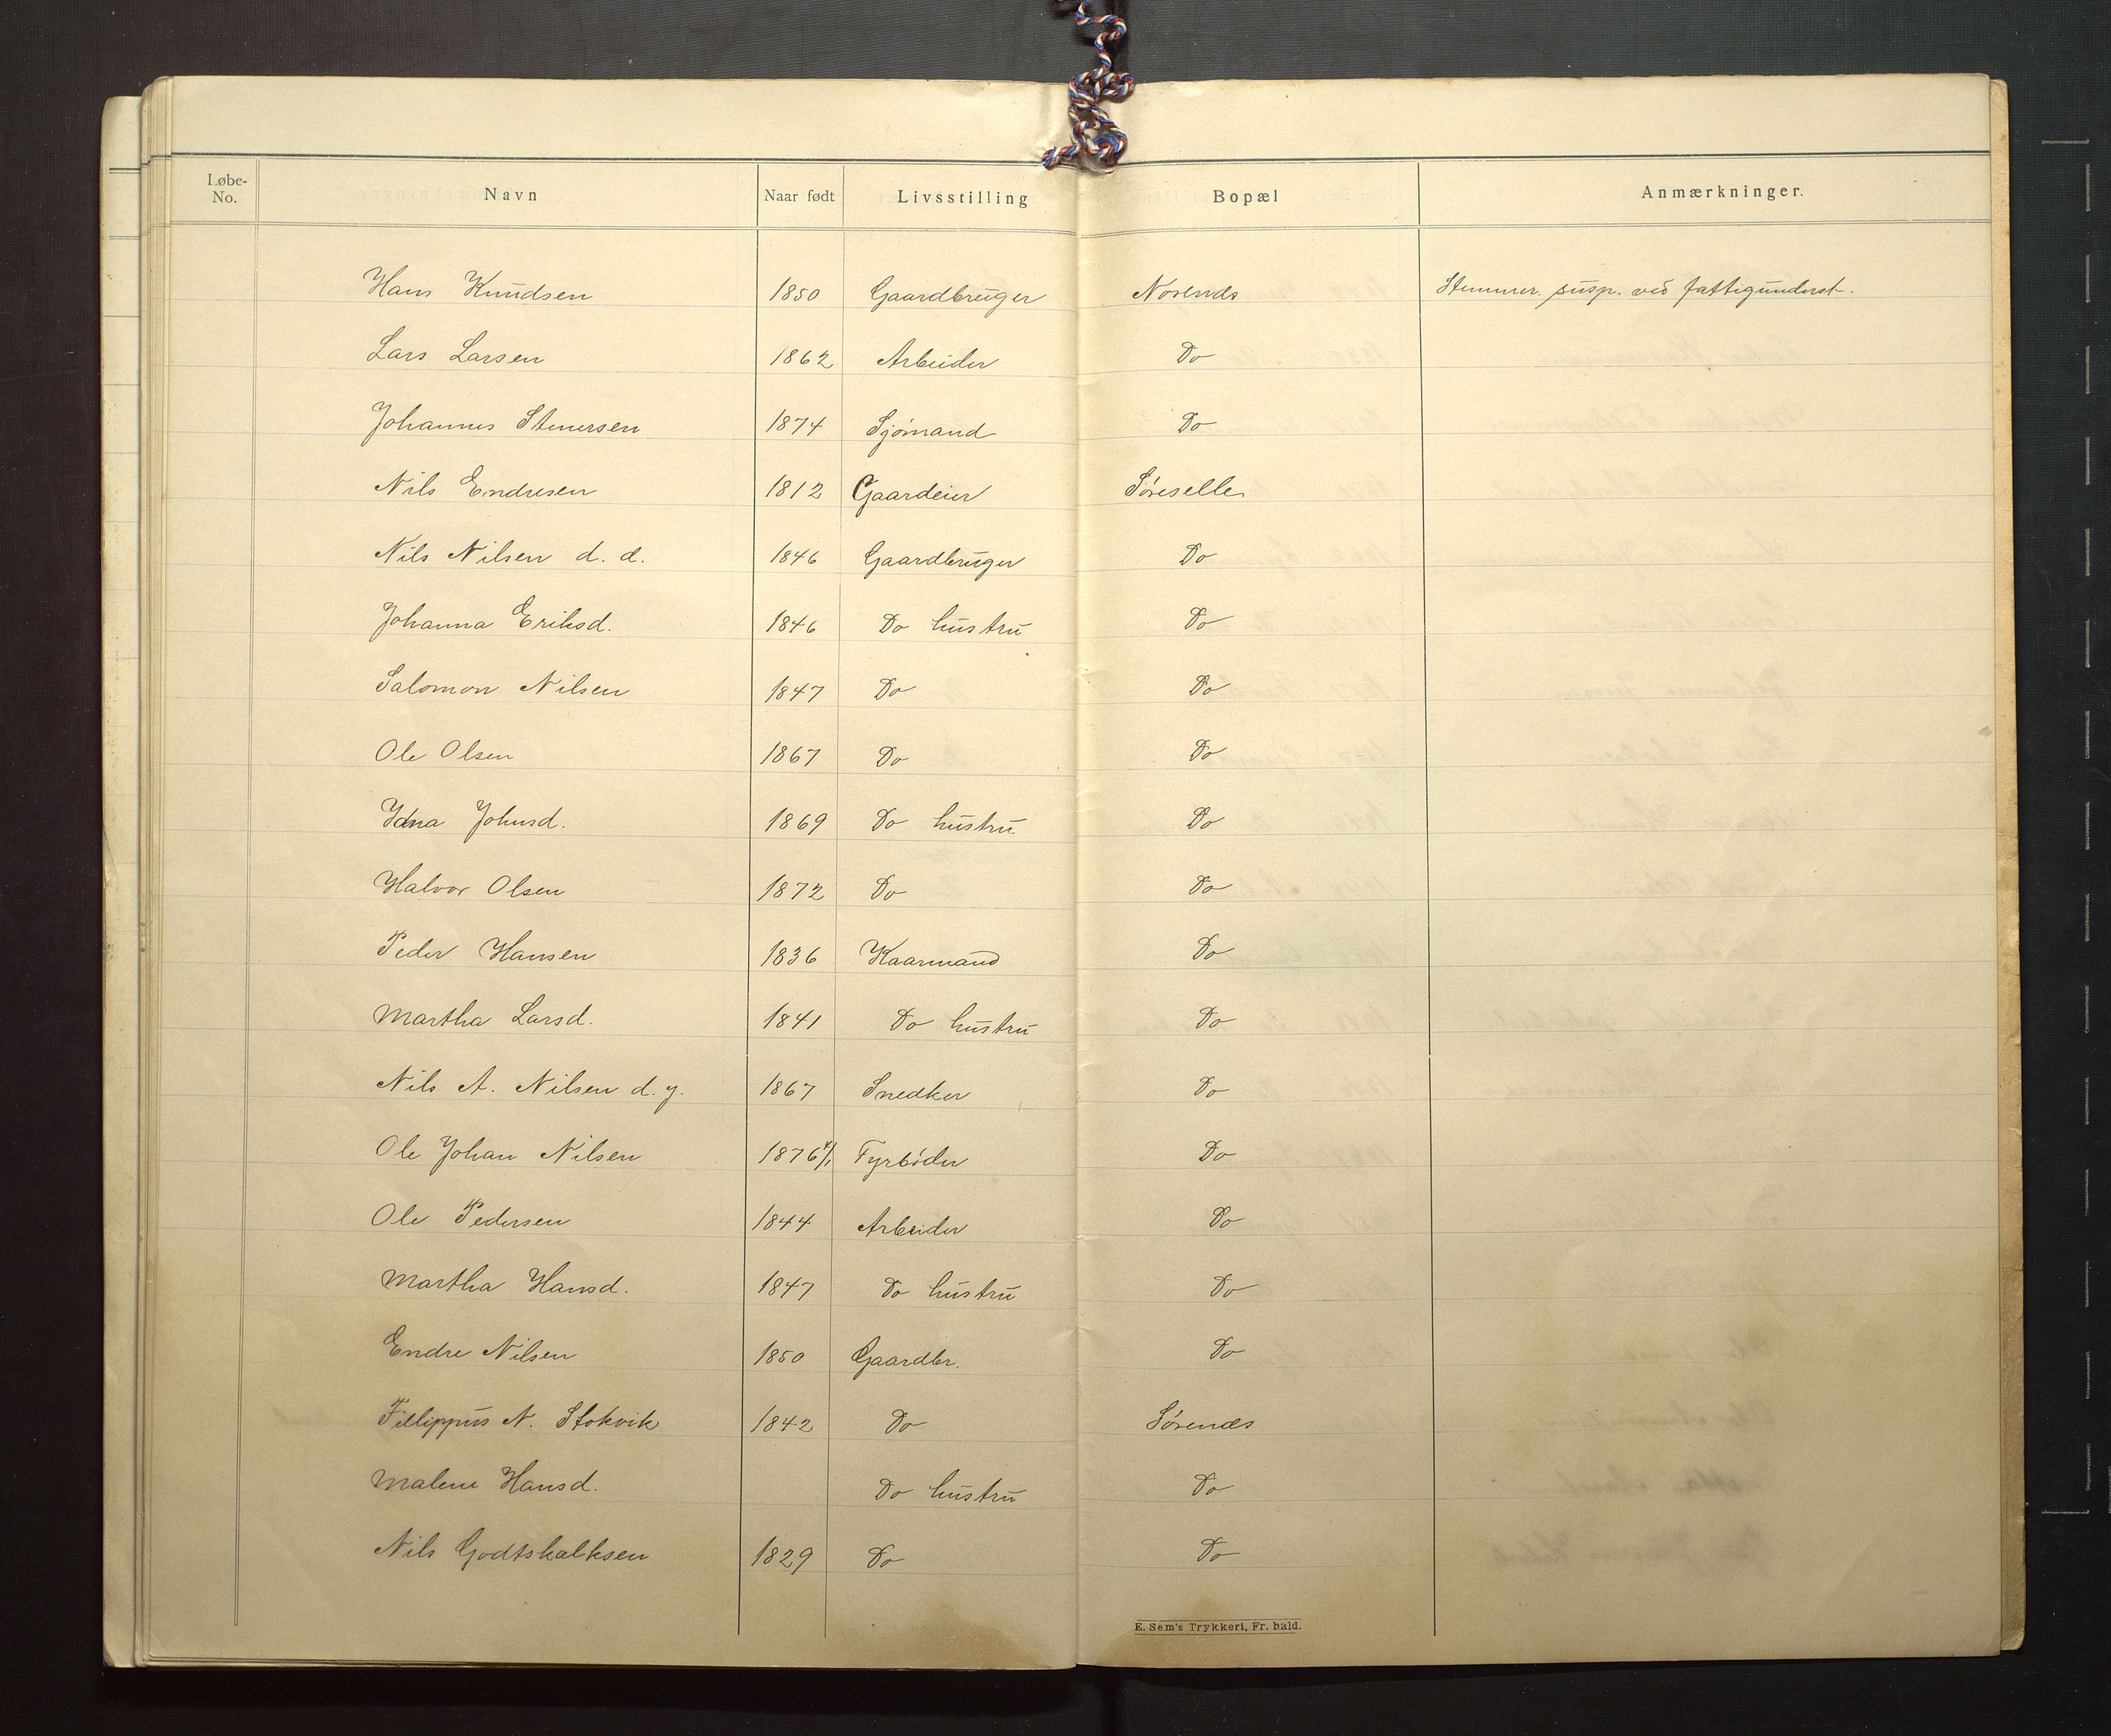 Løbe-No. Navn Naar født Livsstilling Bopæl Anmærkninger.
Hans Knudsen 1850 Gaardbruger Norends Stemmer. susp. ved fattigunderst.
Lars Larsen 1862 Arbeider Do
Johannes Stenersen 1874 Sjömand Do
Nils Endresen 1812 Gaardeier Söreselle
Nils Nilsen d. d. 1846 Gaardbruger Do
Johanna Eriksd. 1846 Do hustru Do
Salomon Nilsen 1847 Do Do
Ole Olsen 1867 Do Do
Idna Johnsd. 1869 Do hustru Do
Halvor Olsen 1872 Do Do
Peder Hansen 1836 Kaarmand Do
Martha Larsd. 1841 Do hustru Do
Nils A. Nilsen d. y. 1867 Snedker Do
Ole Johan Nilsen 1876 4/1 Fyrböder Do
Ole Pedersen 1844 Arbeider Do
Martha Hansd. 1847 Do hustru Do
Endre Nilsen 1850 Gaardbr. Do
Fillippus N. Stokvik 1842 Do Sörends
Malene Hansd. Do hustru Do
Nils Godtskalksen 1829 Do Do
E. Sem's Trykkeri, Fr. hald.